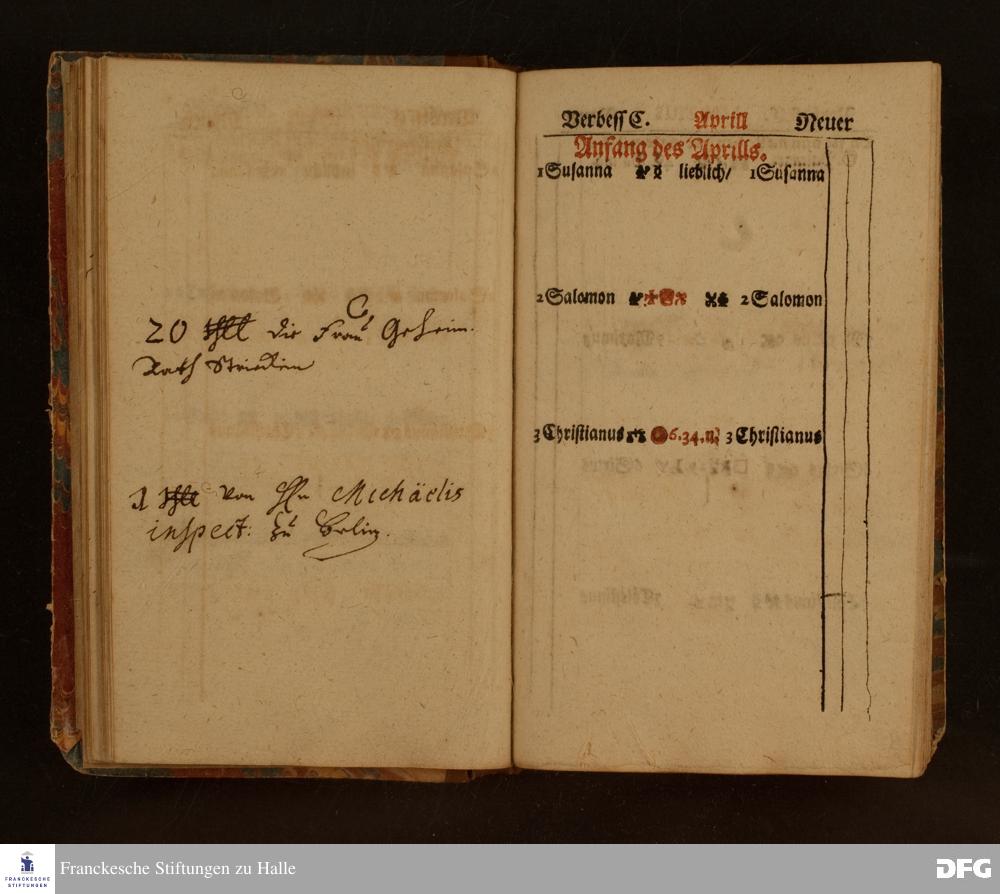 20 Thll die Frau Geheim.
Rath
1 Thll von Hn Michäelis
inspect: zu Berlin.
Verbess C. Aprill Neuer
Anfang des Aprills.
1 Susanna lieblich/ 1 Susanna
2 Salomon 2 Salomon
3 Christianus 6.34.n. 3 Christianus
FRANCKESCHE
STIFTUNGEN
Franckesche Stiftungen zu Halle
DFG